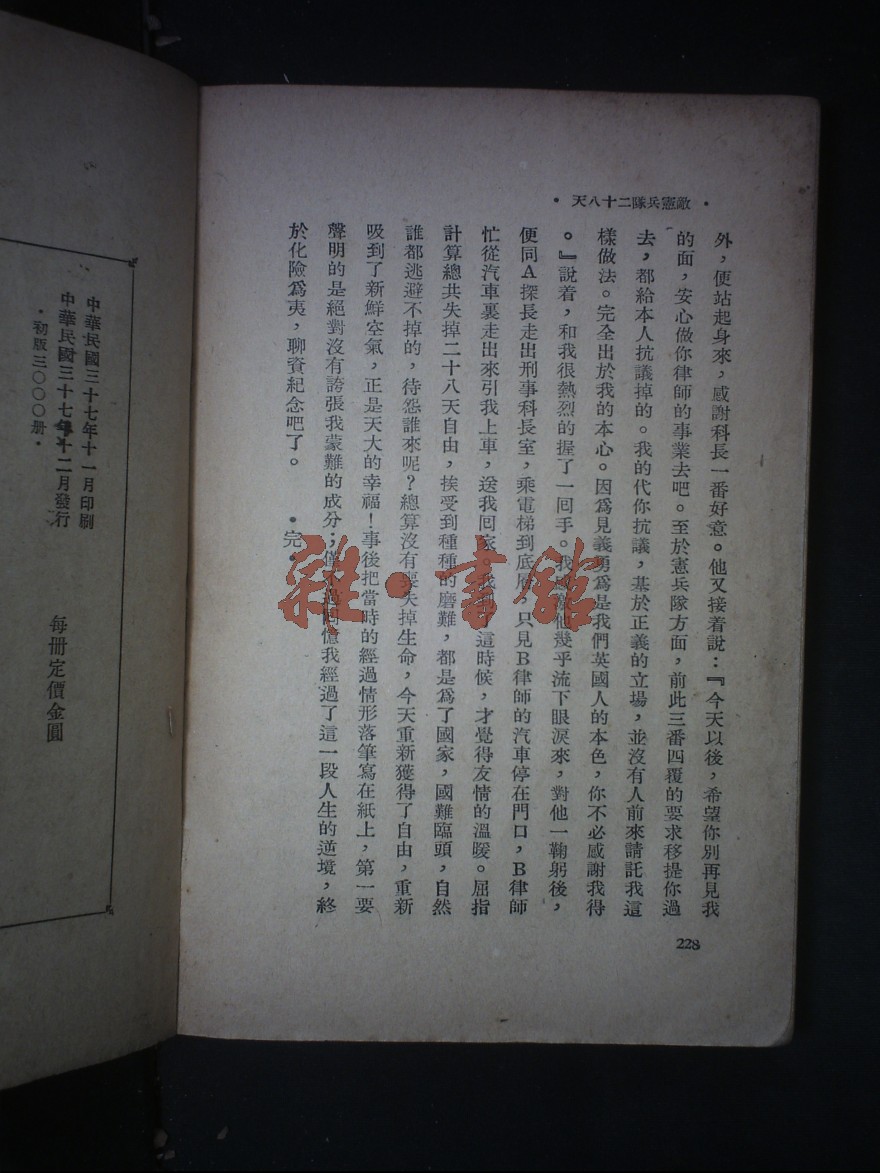 •敵憲兵隊二十八天•
外，便站起身來，感謝科長一番好意。他又接着說：『今天以後，希望你別再見我
的面，安心做你律師的事業去吧。至於憲兵隊方面，前此三番四覆的要求移提你過
去，都給本人抗議掉的。我的代你抗議，基於正義的立場，並沒有人前來請託我這
樣做法。完全出於我的本心。因爲見義勇爲是我們英國人的本色，你不必感謝我得
。』說着，和我很熱烈的握了一回手。我感激他幾乎流下眼淚來，對他一鞠躬後，
便同A探長走出刑事科長室，乘電梯到底層，只見B律師的汽車停在門口，B律師
忙從汽車裏走出來引我上車，送我回家。我到了這時候，才覺得友情的溫暖。屈指
計算總共失掉二十八天自由，挨受到種種的磨難，都是爲了國家，國難臨頭，自然
誰都逃避不掉的，待怨誰來呢？總算沒有喪失掉生命，今天重新獲得了自由，重新
吸到了新鮮空氣，正是天大的幸福！事後把當時的經過情形落筆寫在紙上，第一要
聲明的是絕對沒有誇張我蒙難的成分；僅不過回憶我經過了這一段人生的逆境，終
於化險爲夷，聊資紀念吧了。　•完•
228
雜•書館
中華民國三十七年十一月印刷
中華民國三十七年十二月發行
•初版三〇〇〇册•
每册定價金圓